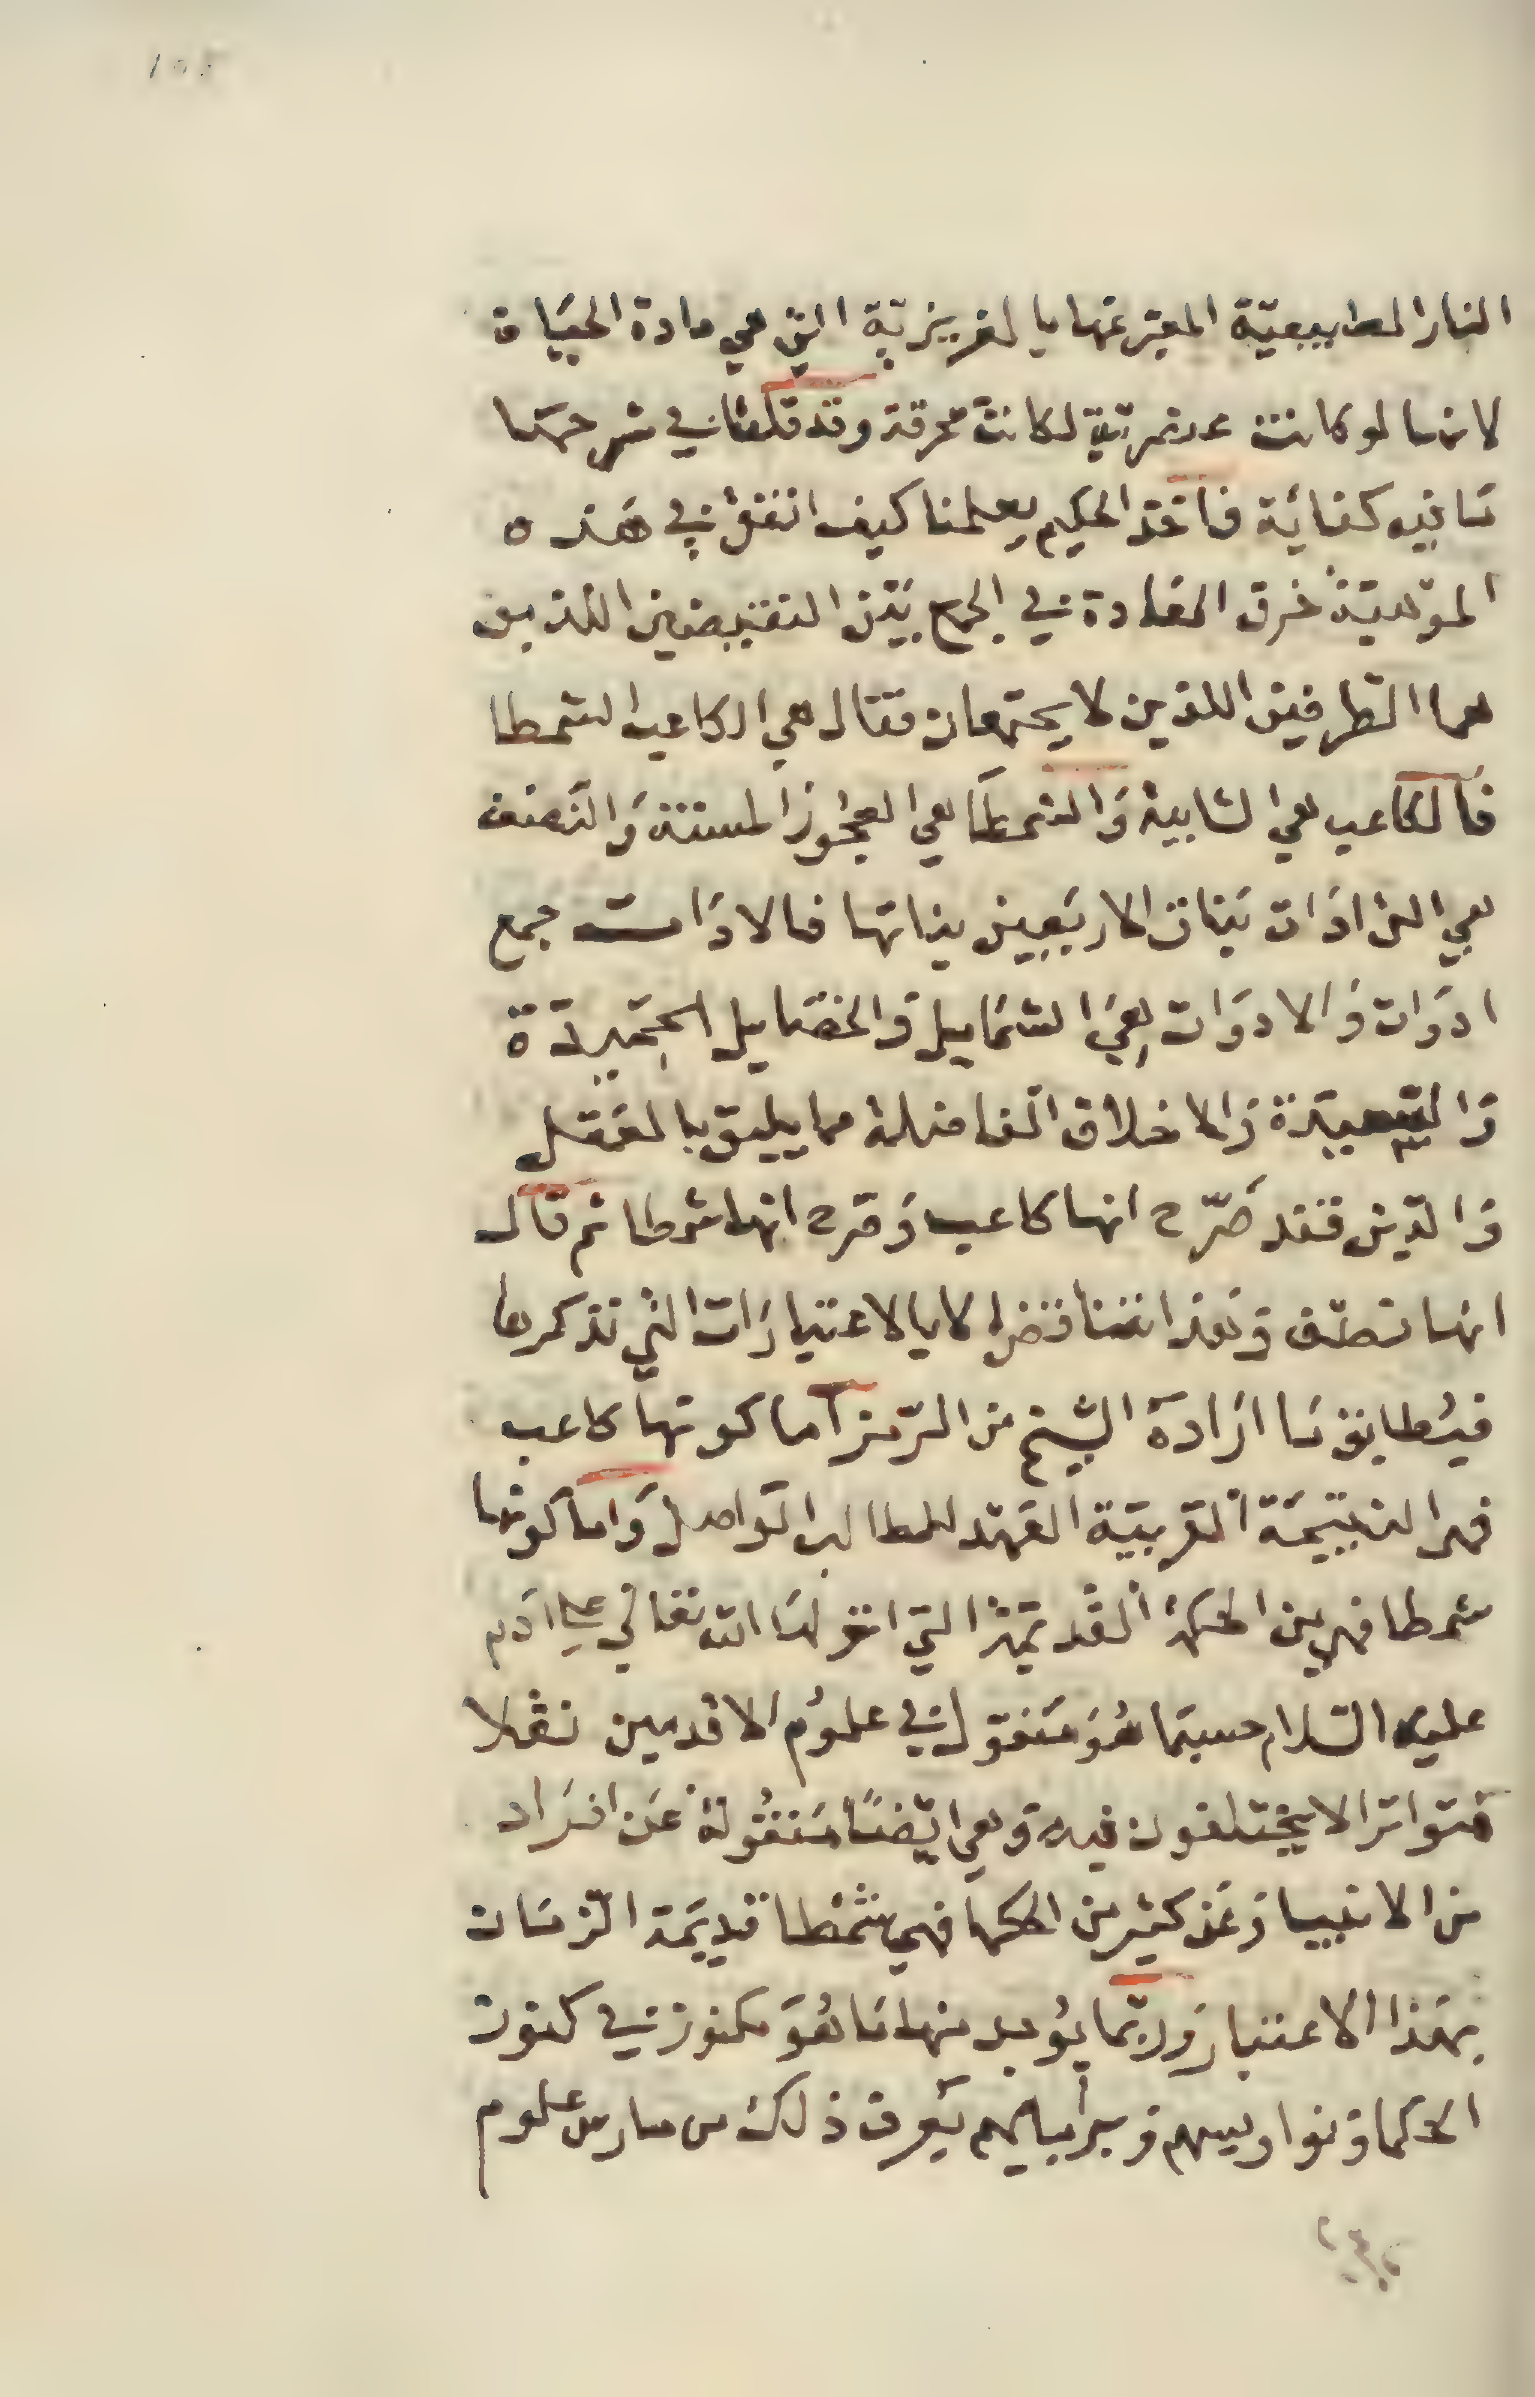 النار الطبيعيّة المعبّر عنها بالغريزيّة التي هي مادة الحيَاة
لانها لو كانت عنصريّة لكانت محرقة وقد قلنا في شرحها
مَا فيه كفائة فاخذ الحكيم يعلمنا كيف اتفق في هَذه
الموهبَة خرق العَادة في الجمع بَيْن النقيضين اللذين
هما الطرفين اللذين لا يجتمعان فقال هي الكاعب الشمطا
فَالكاعب هي الشابة وَالشمطَا هي العجُوز المسنة وَالنَصَف
هي التي ادَوات بنات الاربَعين بذاتها فالادَوات جمع
ادَوات وَالادوَات هي الشمَايل وَالخصَايل الحَمِيدَة
وَالسعيدَة وَالاخلاق الفاضلة مما يليق بالعَقل
وَالدين فقد صَرّح انها كاعب وَصَرح انها شمطا ثم قال
انها نصَف وَهَذا تناقض الا بالاعتبارَات التي نذكرها
فيُطابق مَا ارَادهَ الشيخ من الرّمز امّا كونها كاعب
فهي النتيجَة القريبَة العَهد للطالب الوَاصل وَامَا كونها
شمطا فهي من الحكمَة القَديمَة التي انزلهَا الله تعَالي علي ادَم
عليه السَلام حسبمَا هُوَ مَنقوَل في علوُم الاقدمين نقْلا
مَتواترا لا يختلفون فيه وَهي ايْضًا مَنقُولة عَن افرَاد
من الانبيا وَعَن كثير من الحكما فهي شمْطا قديمَة الزمَان
بهَذا الاعتبار وَربّمَا يُوجد منها مَا هُوَ مكنوز في كنوز
الحكما وَنواويسهم وَبرابيهم يَعرف ذلك من مارس علوم